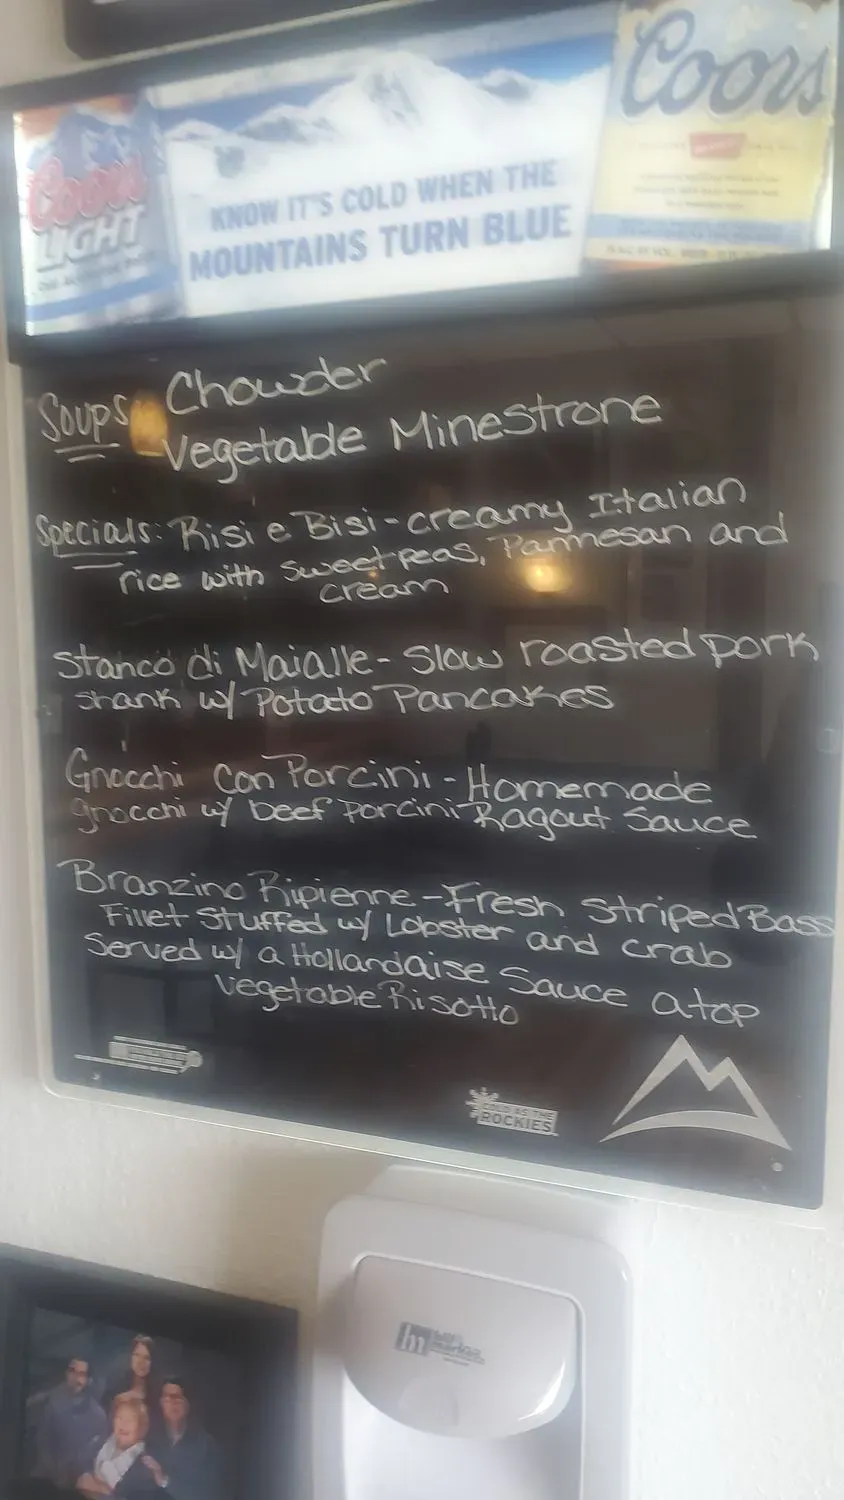 Coors
LIGHT
KNOW IT'S COLD WHEN THE
MOUNTAINS TURN BLUE
Coors
Soups: Chowder
Vegetable Minestrone
Specials: Risi e Bisi - creamy Italian
rice with sweet peas, Parmesan and
cream
Stanco di Maialle - Slow roasted pork
shank w/ Potato Pancakes
Gnocchi Con Porcini - Homemade
gnocchi w/ beef porcini Ragout Sauce
Branzino Ripienne - Fresh Striped Bass
Fillet Stuffed w/ Lobster and crab
Served w/ a Hollandaise Sauce atop
Vegetable Risotto
COLD AS THE
ROCKIES